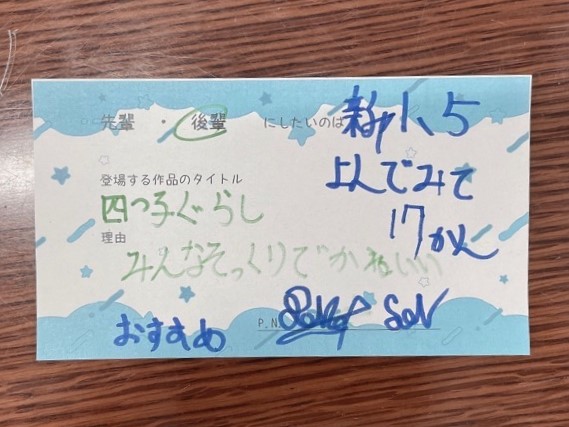 先輩 ・ 後輩 にしたいのは 新小5
よんでみて
登場する作品のタイトル
四つ子ぐらし
17かん
理由
みんなそっくりでかわいい
おすすめ
P.N.